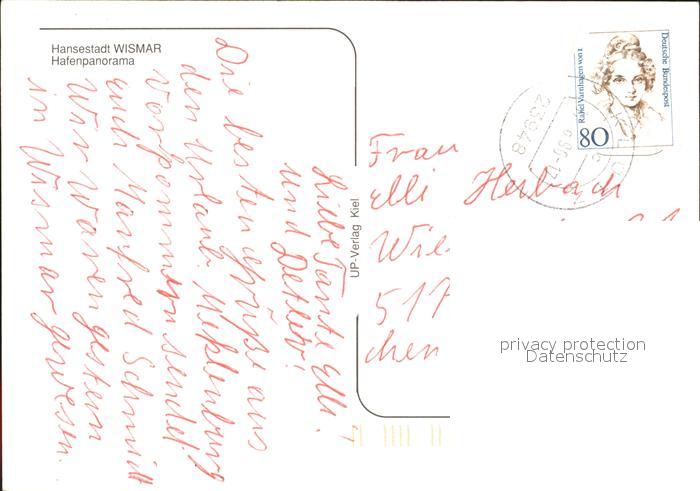 Hansestadt WISMAR
Hafenpanorama
Liebe Tante Elli!
und Detlev!
Die besten Grüße aus
den Urlaub Meklenburg
Vorpommern sendet
euch Manfred Schmidt
Wir waren gestern
in Wismar gewesen.
UP-Verlag Kiel
Deutsche Bundespost
Rahel Varnhagen von
80
23948
Frau
Elli Herbach
Wie
517
chen
privacy protection
Datenschutz